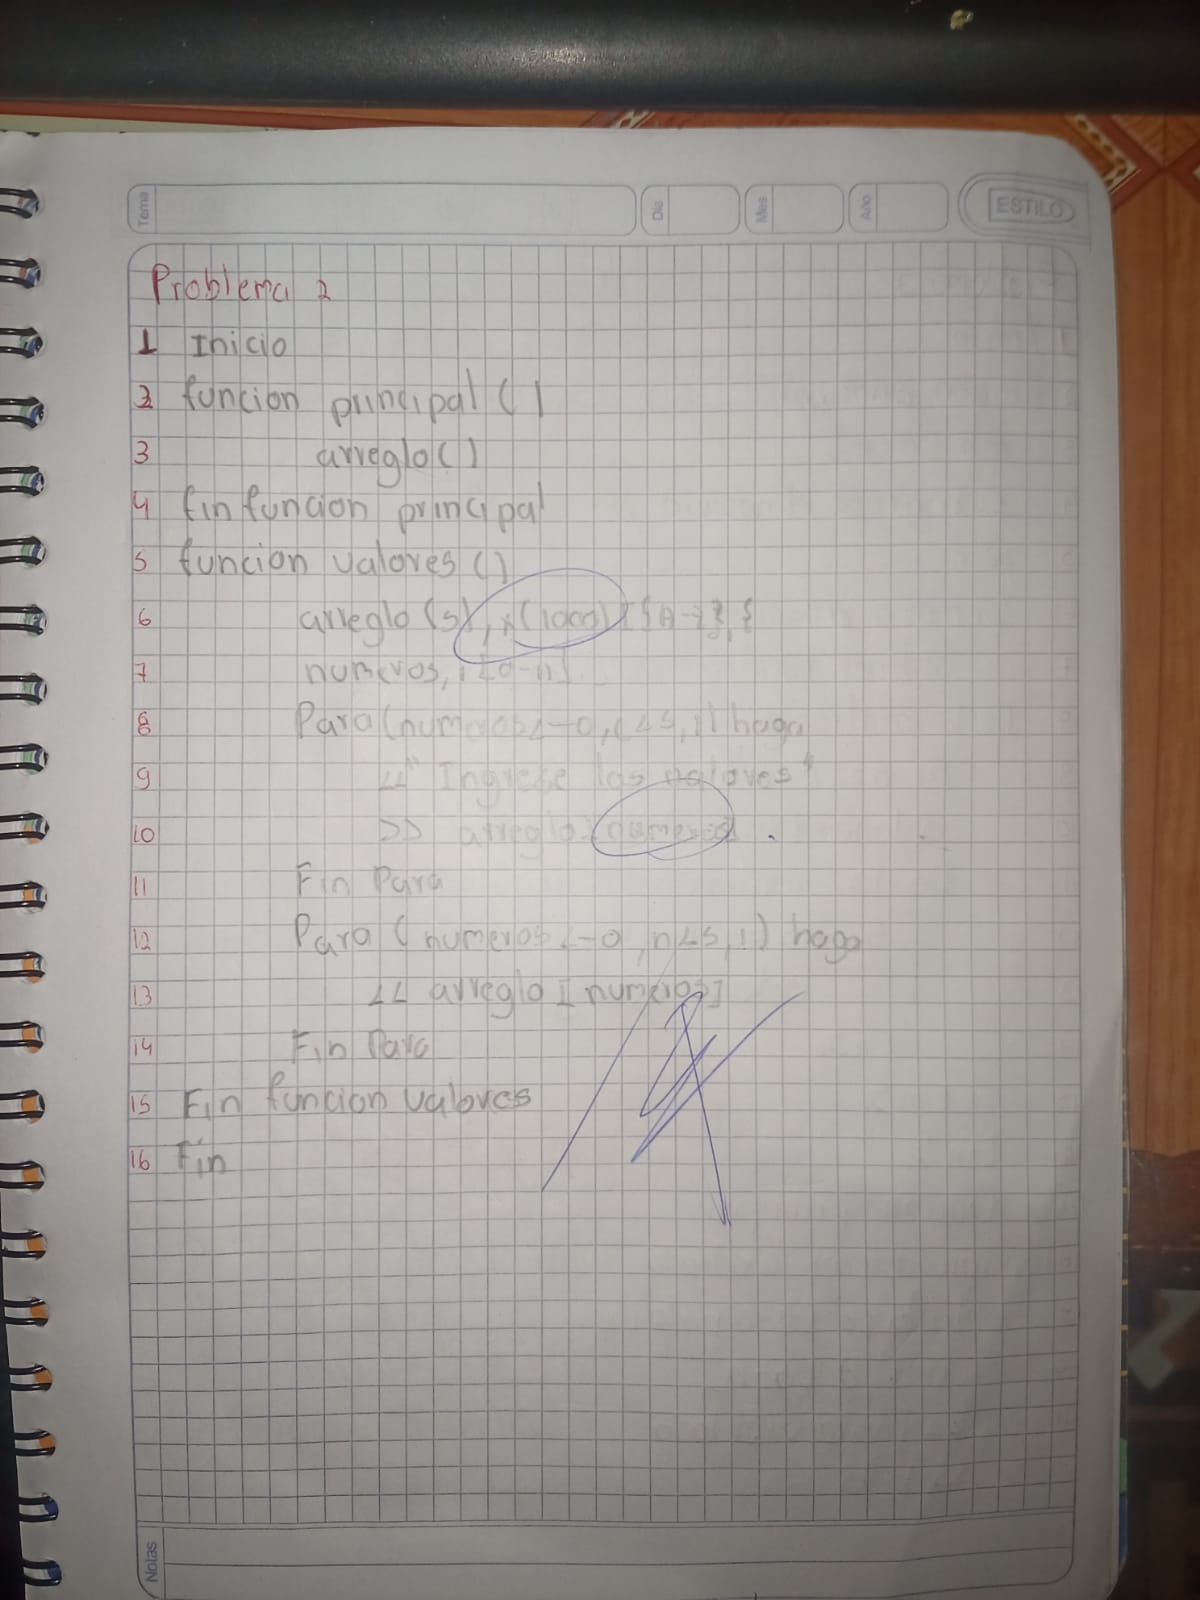 Tema
Dia
Mes
Año
ESTILO
Problema 2
1 Inicio
2 funcion principal ( )
3 arreglo ( )
4 fin funcion principal
5 funcion valores ( )
6 arreglo (5), (1000)
7 numeros,
8 Para (numeros haga
9 << "Ingrese los valores"
10 >> arreglo numeros
11 Fin Para
12 Para ( numeros haga
13 << arreglo [ numeros]
14 Fin Para
15 Fin funcion valores
16 Fin
Notas